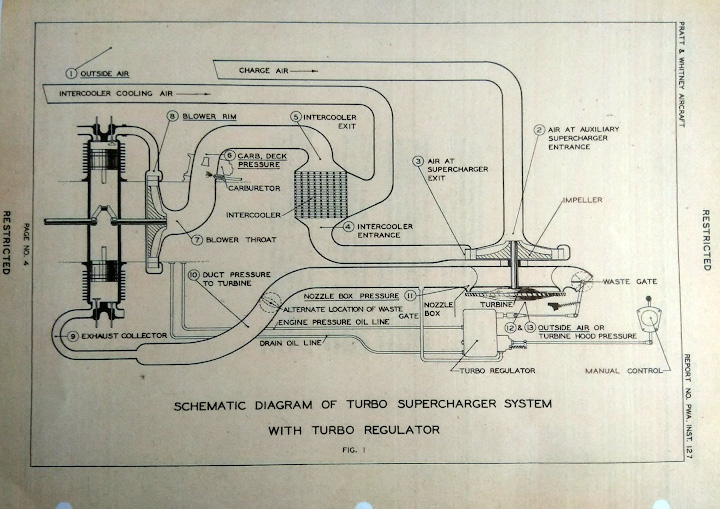 PRATT & WHITNEY AIRCRAFT
① OUTSIDE AIR
CHARGE AIR
INTERCOOLER COOLING AIR
⑧ BLOWER RIM
⑤ INTERCOOLER
EXIT
② AIR AT AUXILIARY
SUPERCHARGER
ENTRANCE
⑥ CARB. DECK
PRESSURE
③ AIR AT
SUPERCHARGER
EXIT
CARBURETOR
IMPELLER
INTERCOOLER
④ INTERCOOLER
ENTRANCE
⑦ BLOWER THROAT
RESTRICTED
PAGE NO. 4
RESTRICTED
⑩ DUCT PRESSURE
TO TURBINE
WASTE GATE
NOZZLE BOX PRESSURE ⑪
NOZZLE
BOX
TURBINE
ALTERNATE LOCATION OF WASTE
GATE
ENGINE PRESSURE OIL LINE
⑫ & ⑬ OUTSIDE AIR OR
TURBINE HOOD PRESSURE
⑨ EXHAUST COLLECTOR
DRAIN OIL LINE
TURBO REGULATOR
MANUAL CONTROL
REPORT NO. PWA. INST. 127
SCHEMATIC DIAGRAM OF TURBO SUPERCHARGER SYSTEM
WITH TURBO REGULATOR
FIG. 1